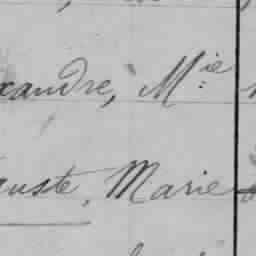 xandre, M.ie
uste, Marie